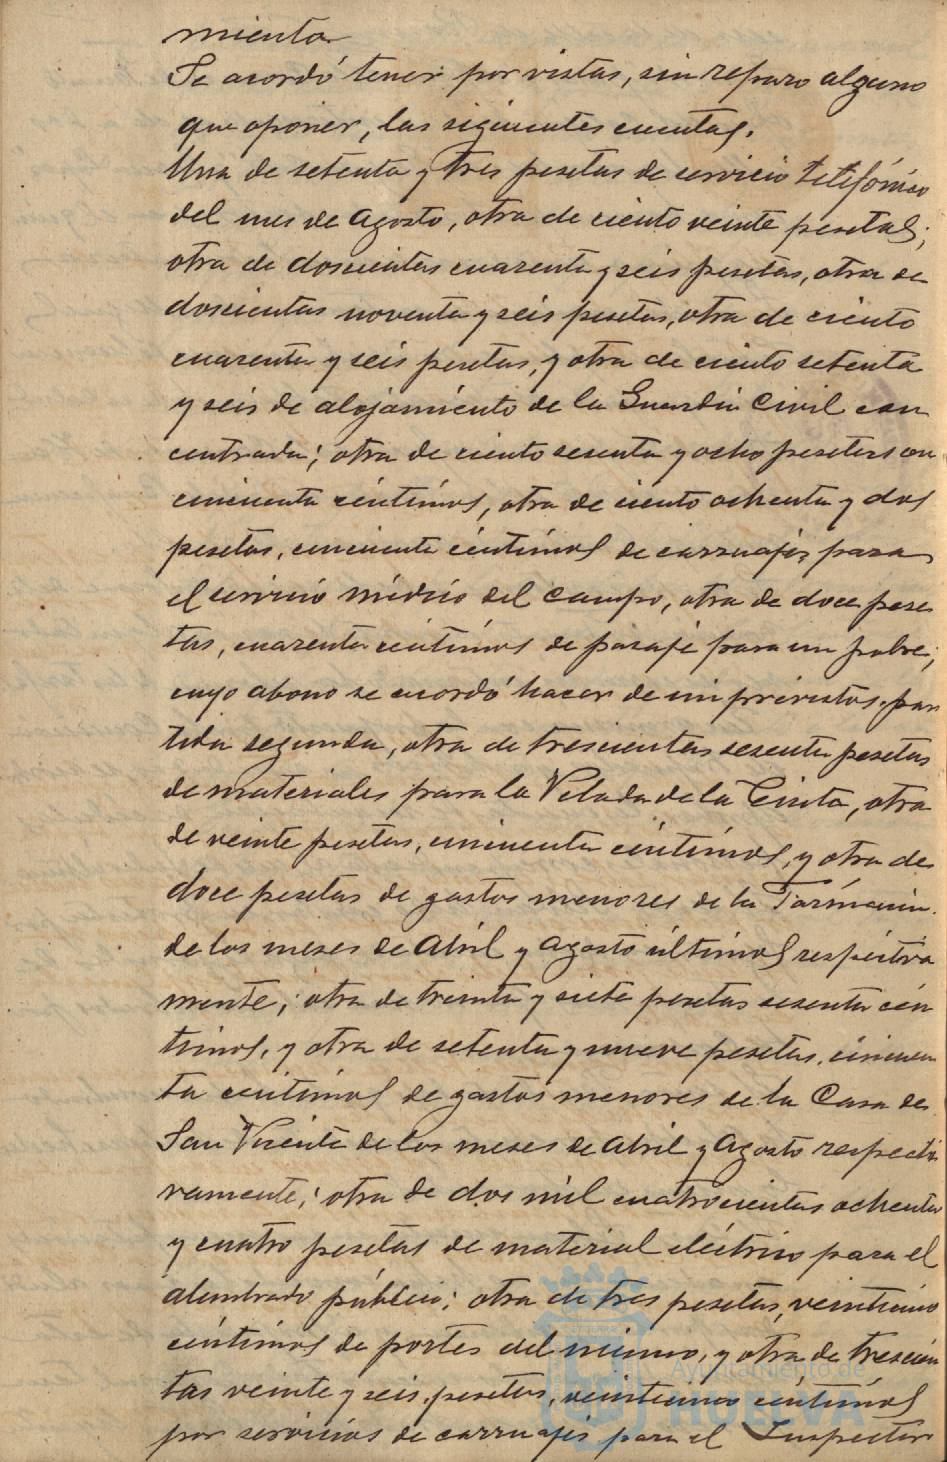 miento.
Se acordó tener por vistas, sin reparo alguno
que oponer, las siguientes cuentas.
Una de setenta y tres pesetas de servicio telefónico
del mes de Agosto, otra de ciento veinte pesetas;
otra de doscientas cuarenta y seis pesetas, otra de
doscientas noventa y seis pesetas, otra de ciento
cuarenta y seis pesetas, y otra de ciento setenta
y seis de alojamiento de la Guardia Civil con
centrada; otra de ciento sesenta y ocho pesetas con
cincuenta céntimos, otra de ciento ochenta y dos
pesetas, cincuenta céntimos de carruajes para
el servicio médico del Campo, otra de doce pese
tas, cuarenta céntimos de pasaje para un pobre;
cuyo abono se acordó hacer de imprevistos, par
tida segunda, otra de trescientas sesenta pesetas
de materiales para la Velada de la Cinta, otra
de veinte pesetas, cincuenta céntimos, y otra de
doce pesetas de gastos menores de la Farmacia
de los meses de Abril y Agosto últimos respectiva
mente; otra de treinta y siete pesetas sesenta cén
timos, y otra de setenta y nueve pesetas, cincuen
ta céntimos de gastos menores de la Casa de
San Vicente de los meses de Abril y Agosto respecti
vamente; otra de dos mil cuatrocientas ochenta
y cuatro pesetas de material eléctrico para el
alumbrado público; otra de tres pesetas, veinticinco
céntimos de portes del mismo, y otra de trescien
tas veinte y seis pesetas, veinticinco céntimos
por servicios de carruajes para el Inspector
Ayuntamiento de
HUELVA